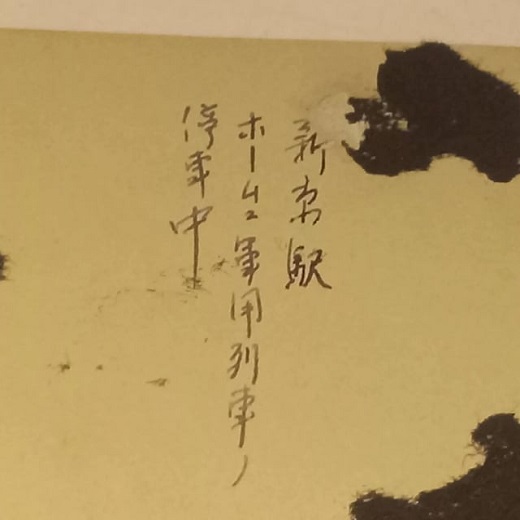 新京駅
ホームニ軍用列車ノ
停車中